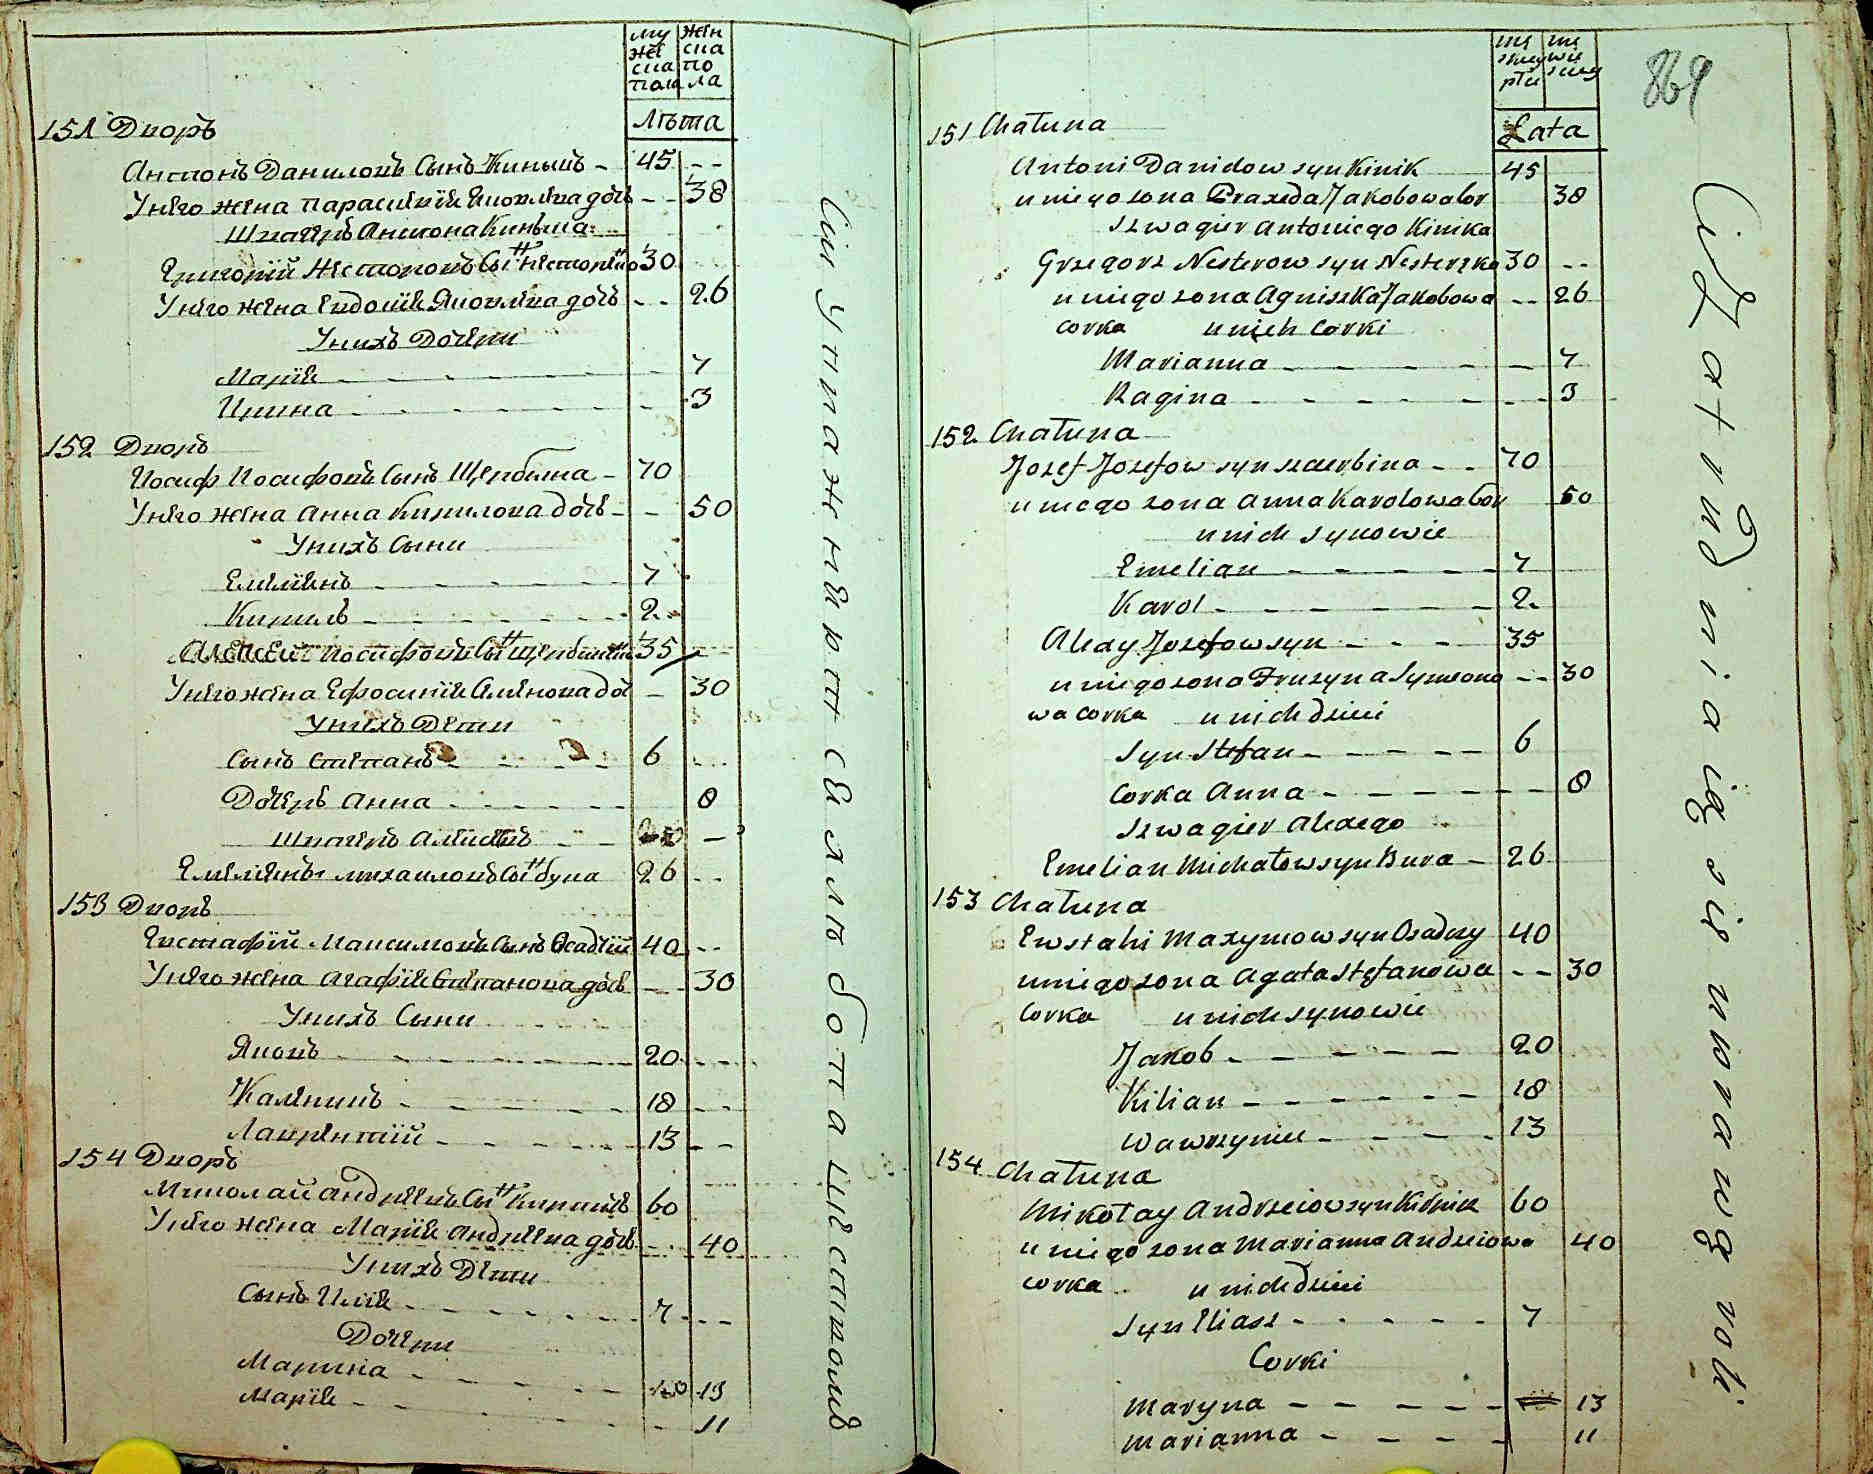 му жен
жес ска
ска по
пола ла
Лѣта
151 Дворъ
Антонъ Даниловъ Сынъ Кинькъ 45
У него жена Параскевія Яковлева дочь 38
Швагеръ Антона Кинька
Григорій Несторовъ Сынъ Нестор 30
У него жена Евдокія Яковлева дочь 26
У нихъ Дочери
Марія 7
Ирина 3
152 Дворъ
Иосиф Иосифовъ Сынъ Щербина 70
У него жена Анна Кирилова дочь 50
У нихъ Сыни
Емелиянъ 7
Кирилъ 2
Алексей Иосифовъ Сынъ Щербина 35
У него жена Ефросиния Семенова доч 30
У нихъ Дети
Сынъ Степанъ 6
Дочерь Анна 8
Швагеръ Алексея
Емелиянъ Михаиловъ Сынъ бура 26
153 Дворъ
Евстафій Максимовъ Сынъ Осадчій 40
У него жена Агафія Степанова дочь 30
У нихъ Сыни
Яковъ 20
Калиникъ 18
Лаврентій 13
154 Дворъ
Миколай Андреевъ Сынъ Кирникъ 60
У него жена Марія Андреева дочь 40
У нихъ Дети
Сынъ Илія 7
Дочери
Марина 13
Марія 11
Сии упражняются в хлебопашестволмъ
869
Lata
151 Chałupa
Antoni Danilow syn Kinik 45
u niego zona Praxeda Jakobowa cor 38
Szwagier Antoniego Kinika
Grzegorz Nesterow syn Nesterzko 30
u niego zona Agniszka Jakobowa 26
corka u nich corki
Marianna 7
Ragina 3
152 Chałupa
Jozef Jozefow syn szczerbina 70
u niego zona Anna Karolowa cor 50
u nich synowie
Emelian 7
Karol 2
Alexy Jozefow syn 35
u niego zona Fruzyna Symeono 30
wa corka u nich dzieci
syn Stefan 6
corka Anna 8
szwagier Alexego
Emelian Michałow syn Bura 26
153 Chałupa
Ewstahi Maxymow syn Osadczy 40
u niego zona Agata Stefanowa 30
corka u nich synowie
Jakob 20
Kilian 18
Wawrzyniec 13
154 Chałupa
Mikołay Andrzeiow syn Kirnik 60
u niego zona Marianna Andrzeiowa 40
corka u nich dzieci
syn Eliasz 7
Corki
Maryna 13
Marianna 11
Ci zatrudniaią się uprawą roli